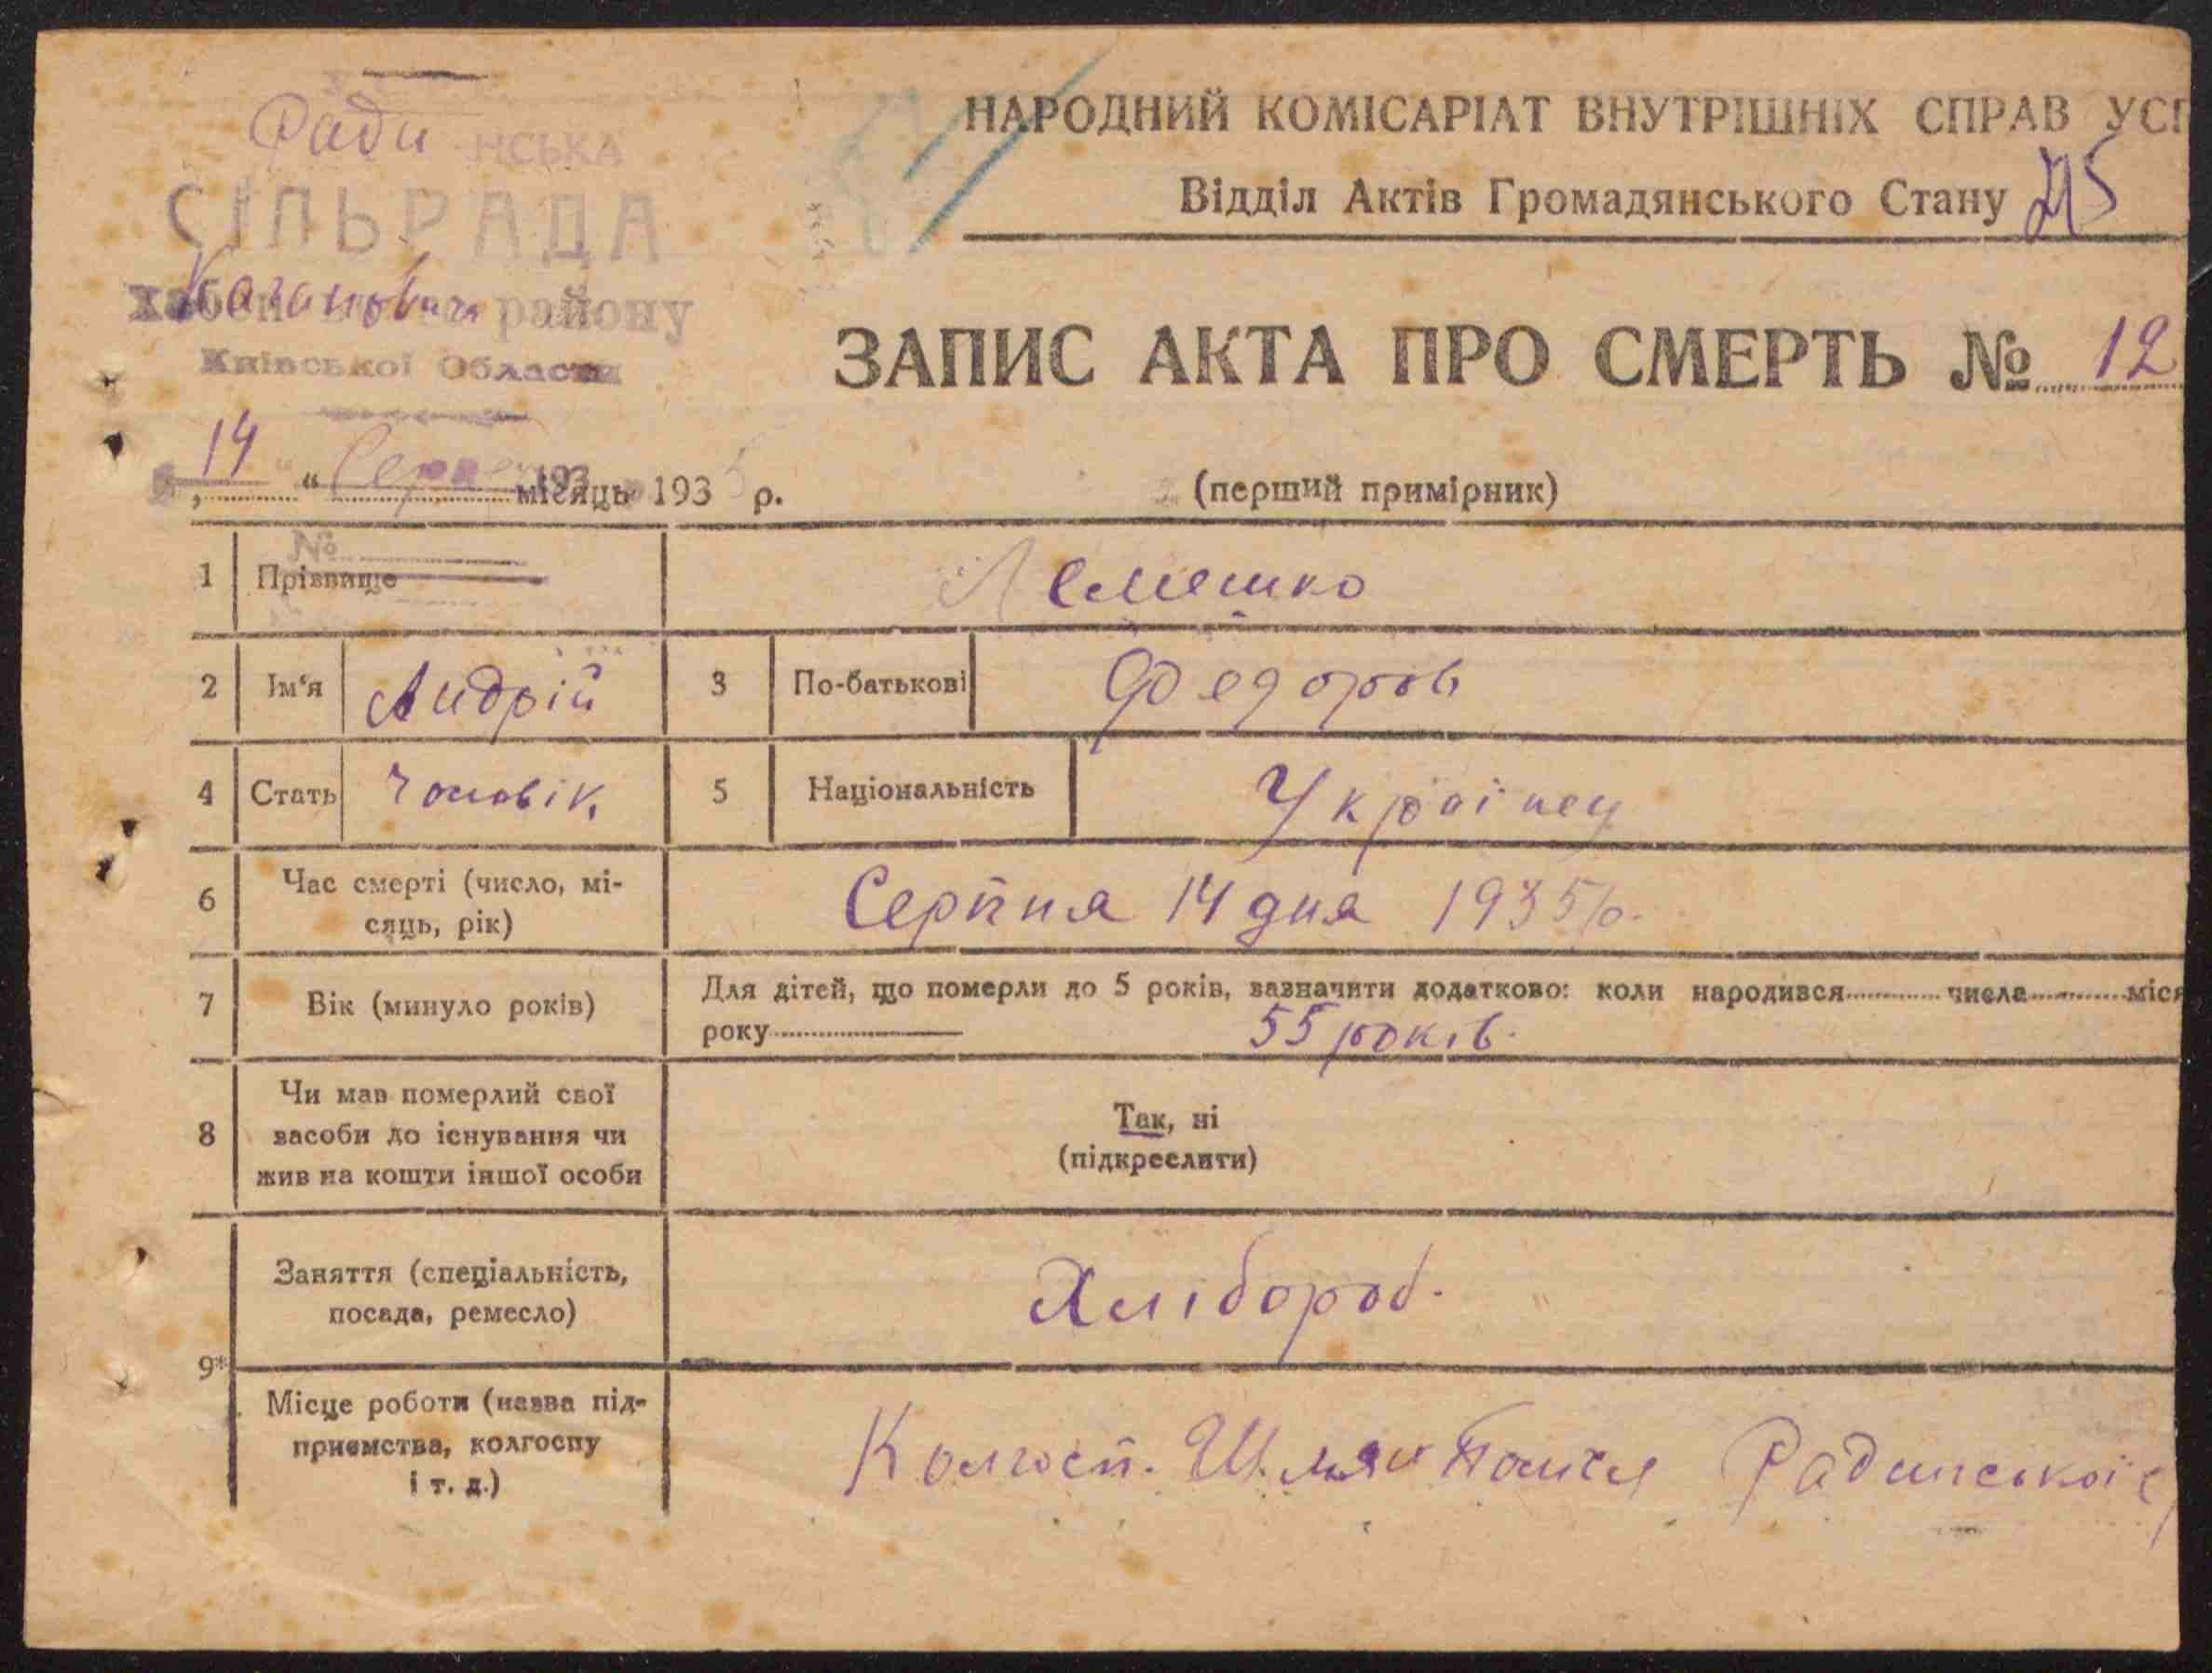 Ради НСЬКА
СІЛЬРАДА
Кагановича району
Київської Области
НАРОДНИЙ КОМІСАРІАТ ВНУТРІШНІХ СПРАВ УСР
Відділ Актів Громадянського Стану
ЗАПИС АКТА ПРО СМЕРТЬ № 12
„14“ Серпень місяць 1935 р.
(перший примірник)
№
1 Прізвище Лемешко
2 Ім'я Андрій 3 По-батькові Федоров
4 Стать Чоловік 5 Національність Українец
6 Час смерті (число, мі-
сяць, рік) Серпня 14 дня 1935 р.
7 Вік (минуло років) Для дітей, що померли до 5 років, зазначити додатково: коли народився числа міся
року 55 років.
8 Чи мав померлий свої
засоби до існування чи
жив на кошти іншої особи
Так, ні
(підкреслити)
9* Заняття (спеціальність,
посада, ремесло) Хлібороб.
Місце роботи (назва під-
приємства, колгоспу
і т. д.) Колгосп. Шлях Радинської с